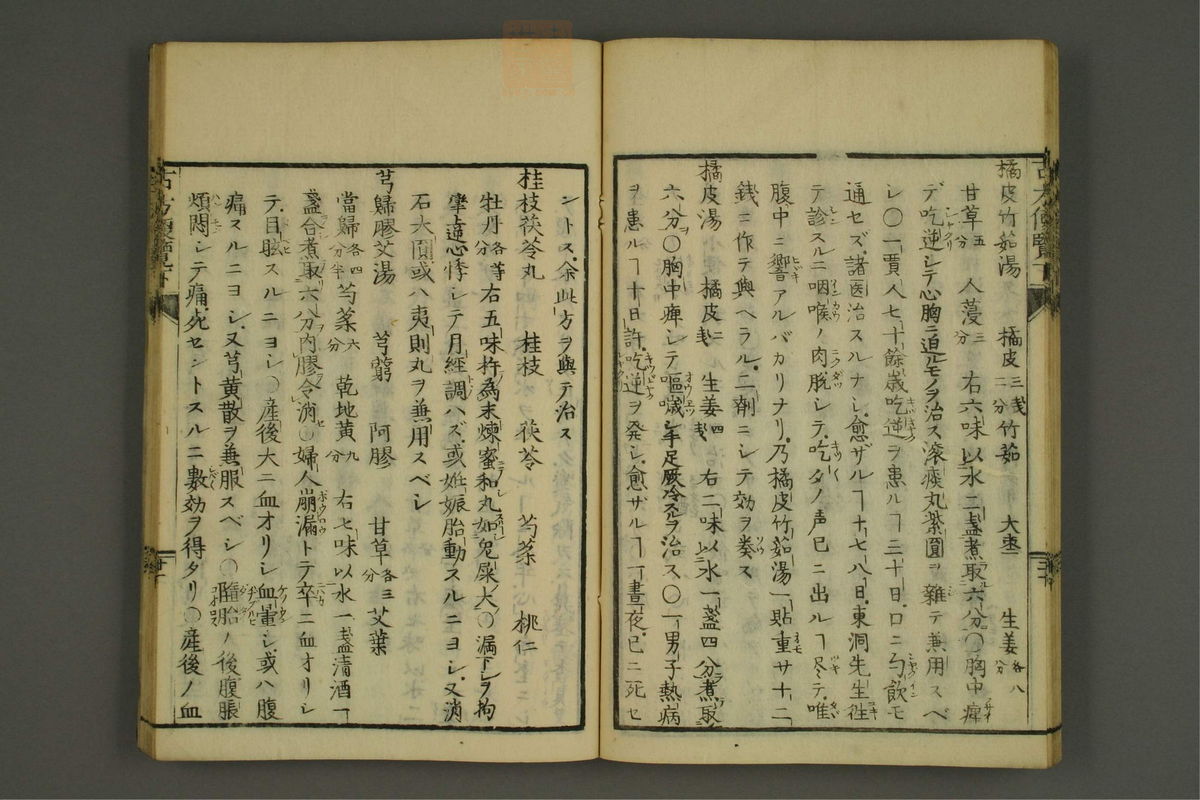 橘皮竹茹湯　橘皮三戔二分竹茹　大棗　生姜各八分
甘草五分　人葠三分　右六味以水二盞煮取六分〇胸中痺
デ吃逆シテ心胸ニ迫ルモノヲ治ス滚痰丸紫圓ヲ雜テ兼用スベ
シ〇一賈人七十餘歳吃逆ヲ患ルヿ三十日口ニ勺飲モ
通セズ諸医治スルナシ愈ザルヿ十七八日東洞先生徃
テ診スルニ咽喉ノ肉脱シテ吃タノ声已ニ出ルヿ尽テ唯
腹中ニ響アルバカリナリ乃橘皮竹茹湯一貼重サ十二
錢ニ作テ與ヘラル二劑ニシテ効ヲ奏ス
橘皮湯　橘皮二戔　生姜四戔　右二味以水一盞四分煮取
六分〇胸中痺シテ嘔噦シ手足厥冷スルヲ治ス〇一男子熱病
ヲ患ルヿ十日許吃逆ヲ発シ愈ザルヿ一晝夜已ニ死セ
ントス余此方ヲ與テ治ス
桂枝茯苓丸　桂枝　茯苓　芍薬　桃仁
牡丹各等分　右五味杵為末煉蜜和丸如兎屎大〇漏下シヲ拘
攣上逆心悸シテ月經調ハズ或妊娠胎動スルニヨシ又消
石大圓或ハ夷則丸ヲ兼用スベシ
芎歸膠艾湯　芎藭　阿膠　甘草各三分　艾葉
當歸各四分半　芍薬六分　乾地黄九分　右七味以水一盞清酒一
盞合煮取六八分内膠令消〇婦人崩漏トテ卒ニ血オリシ
テ目眩スルニヨシ〇産後大ニ血オリシ血暈シ或ハ腹
痛スルニヨシ又芎黄散ヲ兼服スベシ〇墮胎ノ後腹脹
煩悶シテ痛死セントスルニ數効ヲ得タリ〇産後ノ血